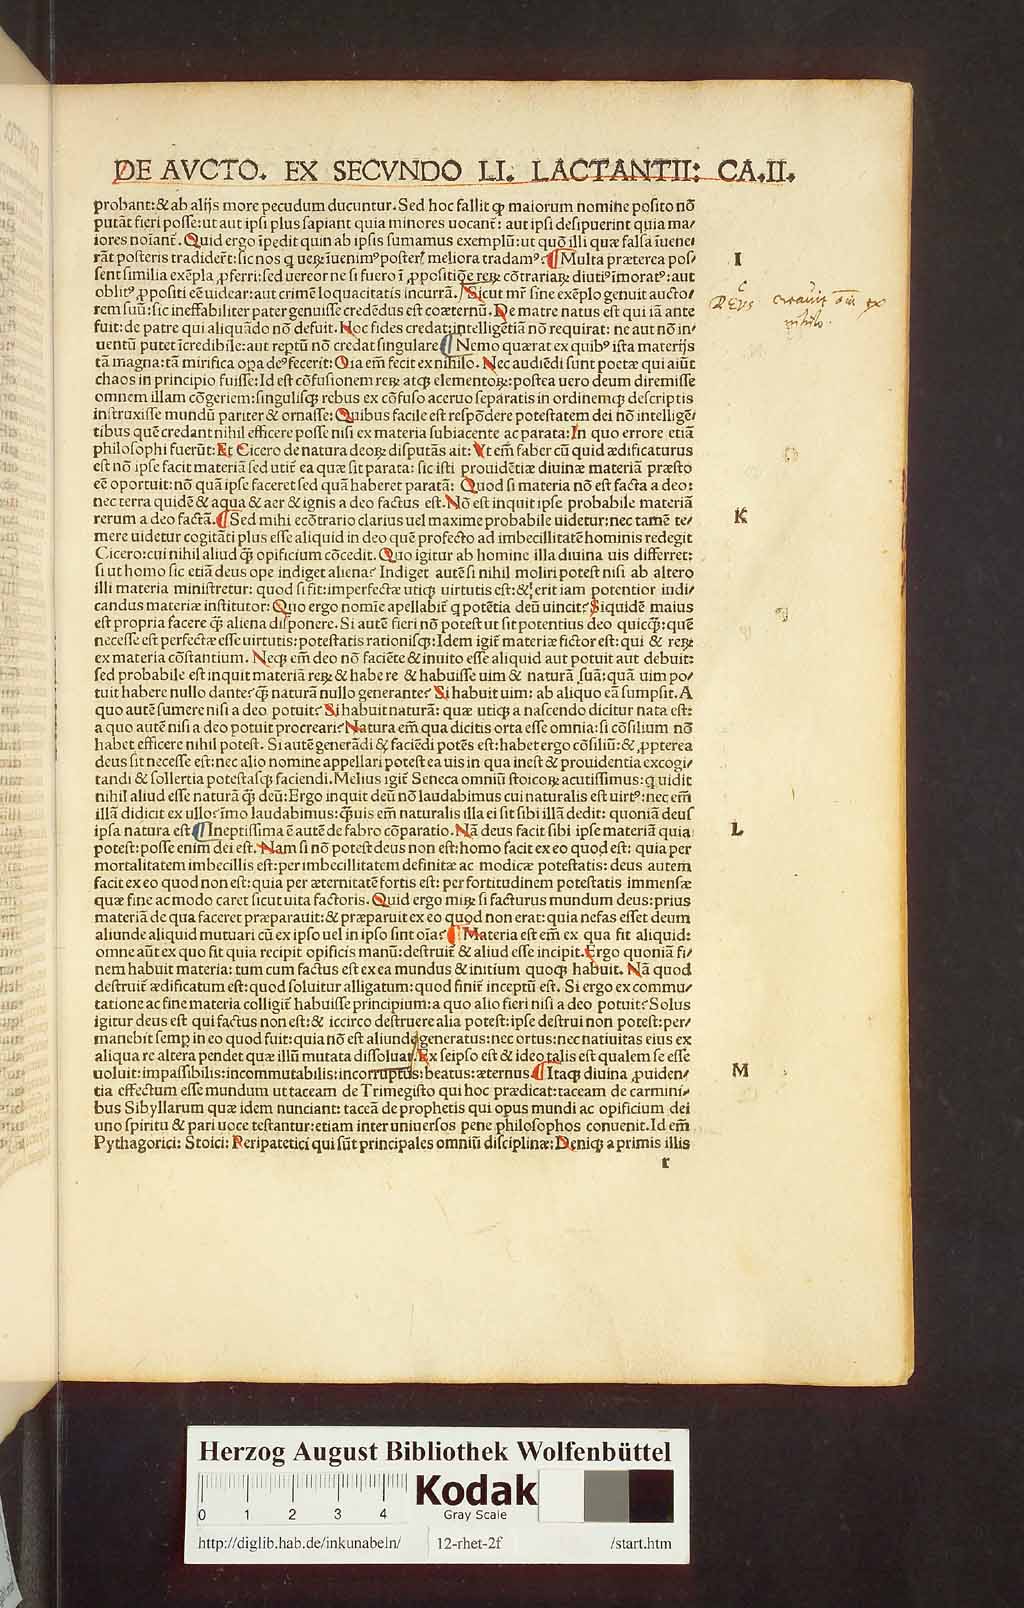 DE AVCTO. EX SECVNDO LI. LACTANTII: CA.II.
probant:& ab alijs more pecudum ducuntur. Sed hoc fallit qꝫ maiorum nomine posito nō
putāt fieri posse:ut aut ipsi plus sapiant quia minores uocant᷑: aut ipsi desipuerint quia ma/
iores noīant᷑. Quid ergo īpedit quin ab ipsis sumamus exemplū:ut quō illi quæ falsa īuene/
rāt posteris tradider̄t:sic nos q ueꝝ īuenimꝰ posterꝭ meliora tradamꝰ? ¶ Multa præterea pos/
I
sent similia exēpla ꝓferri:sed uereor ne si fuero ī ꝓpositiōe reꝝ cōtrariaꝝ diutiꝰ īmoratꝰ: aut
oblitꝰ ꝓpositi eē uidear:aut crimē loquacitatis incurrā. Sicut mr̄ sine exēplo genuit aucto/
rem suū:sic ineffabiliter pater genuisse credēdus est coæternū. De matre natus est qui iā ante
fuit: de patre qui aliquādo nō defuit. Hoc fides credat:intelligētiā nō requirat: ne aut nō in/
uentū putet īcredibile:aut reptū nō credat singulare ¶ Nemo quærat ex quibꝰ ista materijs
tā magna:tā mirifica opa deꝰ fecerit: Oia em̄ fecit ex nihilo. Nec audiēdi sunt poetæ qui aiūt
chaos in principio fuisse:Id est cōfusionem reꝝ atqꝫ elementoꝝ:postea uero deum diremisse
omnem illam cōgeriem:singulisqꝫ rebus ex cōfuso aceruo separatis in ordinemqꝫ descriptis
instruxisse mundū pariter & ornasse: Quibus facile est respōdere potestatem dei nō intelligē/
tibus quē credant nihil efficere posse nisi ex materia subiacente ac parata: In quo errore etiā
philosophi fuerūt: Et Cicero de natura deoꝝ disputās ait: Vt em̄ faber cū quid ædificaturus
est nō ipse facit materiā sed utit᷑ ea quæ sit parata: sic isti prouidētiæ diuinæ materiā præsto
eē oportuit: nō quā ipse faceret sed quā haberet paratā: Quod si materia nō est facta a deo:
nec terra quidē & aqua & aer & ignis a deo factus est. Nō est inquit ipse probabile materiā
rerum a deo factā. ¶ Sed mihi ecōtrario clarius uel maxime probabile uidetur: nec tamē te/
K
mere uidetur cogitāti plus esse aliquid in deo quē profecto ad imbecillitatē hominis redegit
Cicero:cui nihil aliud qꝫ̄ opificium cōcedit. Quo igitur ab homine illa diuina uis differret:
si ut homo sic etiā deus ope indiget aliena? Indiget autē si nihil moliri potest nisi ab altero
illi materia ministretur: quod si fit: imperfectæ utiqꝫ uirtutis est:& erit iam potentior iudi/
candus materiæ institutor: Quo ergo nomīe apellabit᷑ q potētia deū uincit? Siquidē maius
est propria facere qꝫ̄ aliena disponere. Si autē fieri nō potest ut sit potentius deo quicqꝫ: quē
necesse est perfectæ esse uirtutis: potestatis rationisqꝫ: Idem igit᷑ materiæ fictor est: qui & reꝝ
ex materia cōstantium. Neqꝫ em̄ deo nō faciēte & inuito esse aliquid aut potuit aut debuit:
sed probabile est inquit materiā reꝝ & habere & habuisse uim & naturā suā: quā uim po/
tuit habere nullo dante? qꝫ̄ naturā nullo generante? Si habuit uim: ab aliquo eā sumpsit. A
quo autē sumere nisi a deo potuit? Si habuit naturā: quæ utiqꝫ a nascendo dicitur nata est:
a quo autē nisi a deo potuit procreari? Natura em̄ qua dicitis orta esse omnia: si cōsilium nō
habet efficere nihil potest. Si autē generādi & faciēdi potēs est: habet ergo cōsiliū: & ꝓpterea
deus sit necesse est: nec alio nomine appellari potest ea uis in qua inest & prouidentia excogi/
tandi & sollertia potestasqꝫ faciendi. Melius igit᷑ Seneca omniū stoicoꝝ acutissimus: q uidit
nihil aliud esse naturā qꝫ̄ deū: Ergo inquit deū nō laudabimus cui naturalis est uirtꝰ: nec em̄
illā didicit ex ullo? īmo laudabimus: qꝫ̄uis em̄ naturalis illa ei sit sibi illā dedit: quoniā deus
ipsa natura est ¶ Ineptissima ē autē de fabro cōparatio. Nā deus facit sibi ipse materiā quia
L
potest: posse enim dei est. Nam si nō potest deus non est: homo facit ex eo quod est: quia per
mortalitatem imbecillis est: per imbecillitatem definitæ ac modicæ potestatis: deus autem
facit ex eo quod non est: quia per æternitatē fortis est: per fortitudinem potestatis immensæ
quæ fine ac modo caret sicut uita factoris. Quid ergo miꝝ si facturus mundum deus: prius
materiā de qua faceret præparauit: & præparuit ex eo quod non erat: quia nefas esset deum
aliunde aliquid mutuari cū ex ipso uel in ipso sint oīa? ¶ Materia est em̄ ex qua fit aliquid:
omne aūt ex quo fit quia recipit opificis manū: destruit᷑ & aliud esse incipit. Ergo quoniā fi/
nem habuit materia: tum cum factus est ex ea mundus & initium quoqꝫ habuit. Nā quod
destruit᷑ ædificatum est: quod soluitur alligatum: quod finit᷑ inceptū est. Si ergo ex commu/
tatione ac fine materia colligit᷑ habuisse principium: a quo alio fieri nisi a deo potuit? Solus
igitur deus est qui factus non est: & iccirco destruere alia potest: ipse destrui non potest: per/
manebit semp in eo quod fuit: quia nō est aliunde generatus: nec ortus: nec natiuitas eius ex
aliqua re altera pendet quæ illū mutata dissoluat Ex seipso est & ideo talis est qualem se esse
uoluit: impassibilis: incommutabilis: incorruptus: beatus: æternus ¶ Itaqꝫ diuina ꝓuiden/
M
tia effectum esse mundum ut taceam de Trimegisto qui hoc prædicat: taceam de carmini/
bus Sibyllarum quæ idem nunciant: taceā de prophetis qui opus mundi ac opificium dei
uno spiritu & pari uoce testantur: etiam inter uniuersos pene philosophos conuenit. Id em̄
Pythagorici: Stoici: Peripatetici qui sūt principales omniū disciplinæ: Deniqꝫ a primis illis
r
Herzog August Bibliothek Wolfenbüttel
0 1 2 3 4
Kodak
Gray Scale
http://diglib.hab.de/inkunabeln/ 12-rhet-2f /start.htm